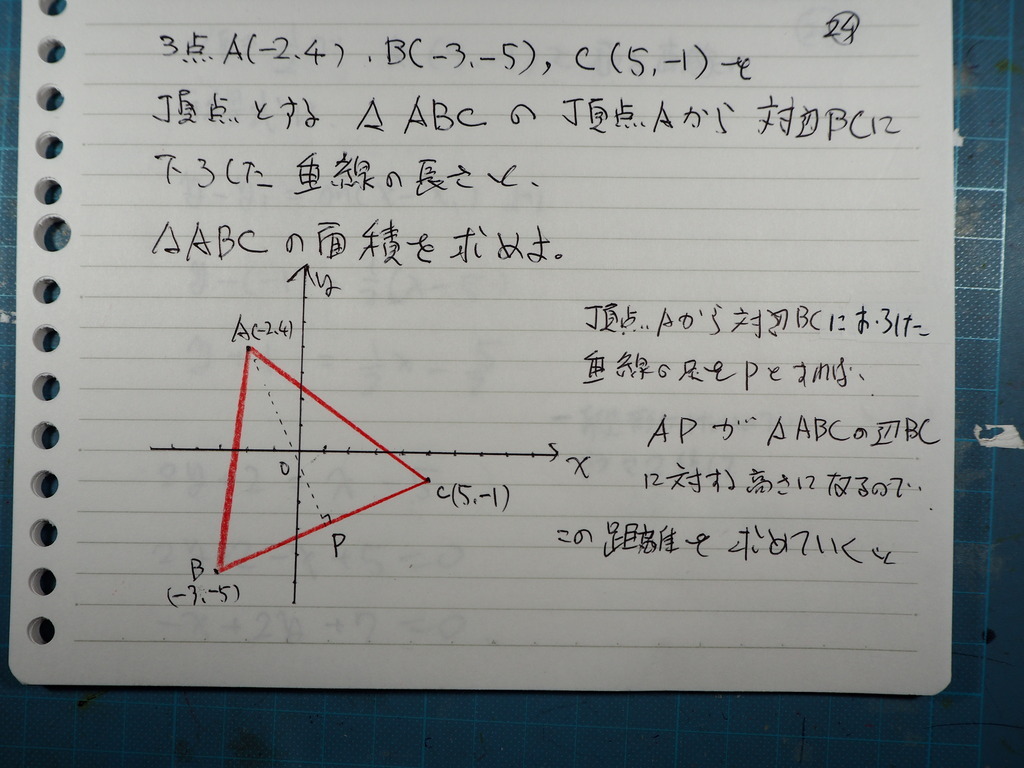 29
3点 A(-2.4)、B(-3,-5), C(5,-1)を
頂点とする △ABCの頂点Aから対辺BCに
下ろした垂線の長さと、
△ABCの面積を求めよ。
y
A(-2.4)
O
x
C(5,-1)
P
B
(-3,-5)
頂点Aから対辺BCにおろした
垂線の足をPとすれば、
APが△ABCの辺BC
に対する高さになるので、
この距離を求めていくと